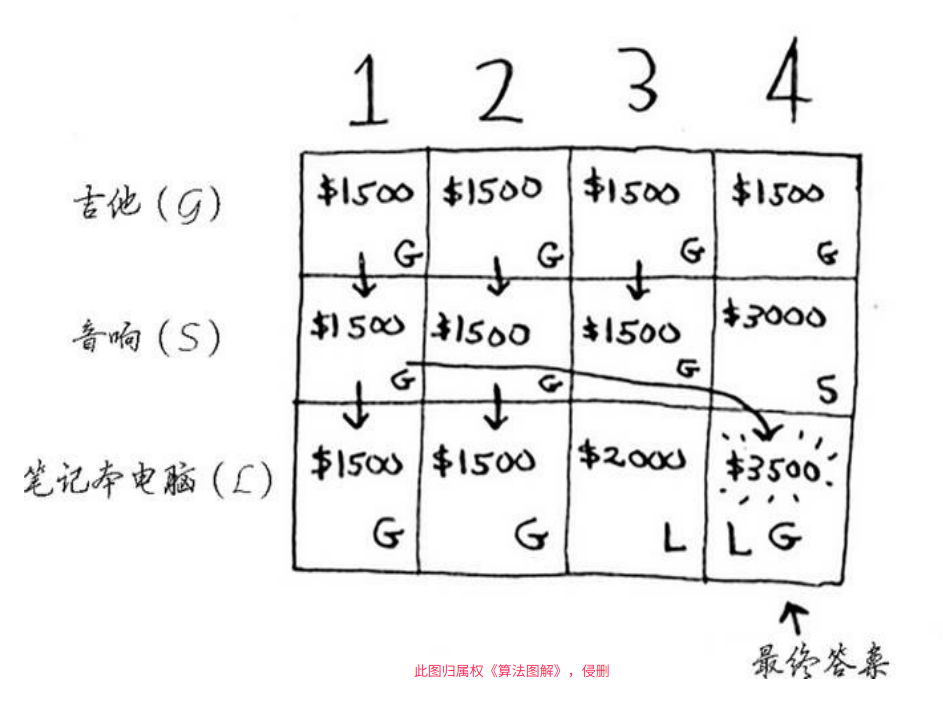 1 2 3 4
吉他(G) $1500 $1500 $1500 $1500
G G G G
音响(S) $1500 $1500 $1500 $3000
G G G S
笔记本电脑(L) $1500 $1500 $2000 $3500
G G L L G
最终答案
此图归属权《算法图解》，侵删